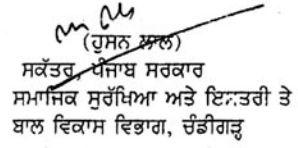 (ਹੁਸਨ ਲਾਲ)
ਸਕੱਤਰ, ਪੰਜਾਬ ਸਰਕਾਰ
ਸਮਾਜਿਕ ਸੁਰੱਖਿਆ ਅਤੇ ਇਸਤਰੀ ਤੇ
ਬਾਲ ਵਿਕਾਸ ਵਿਭਾਗ, ਚੰਡੀਗੜ੍ਹ